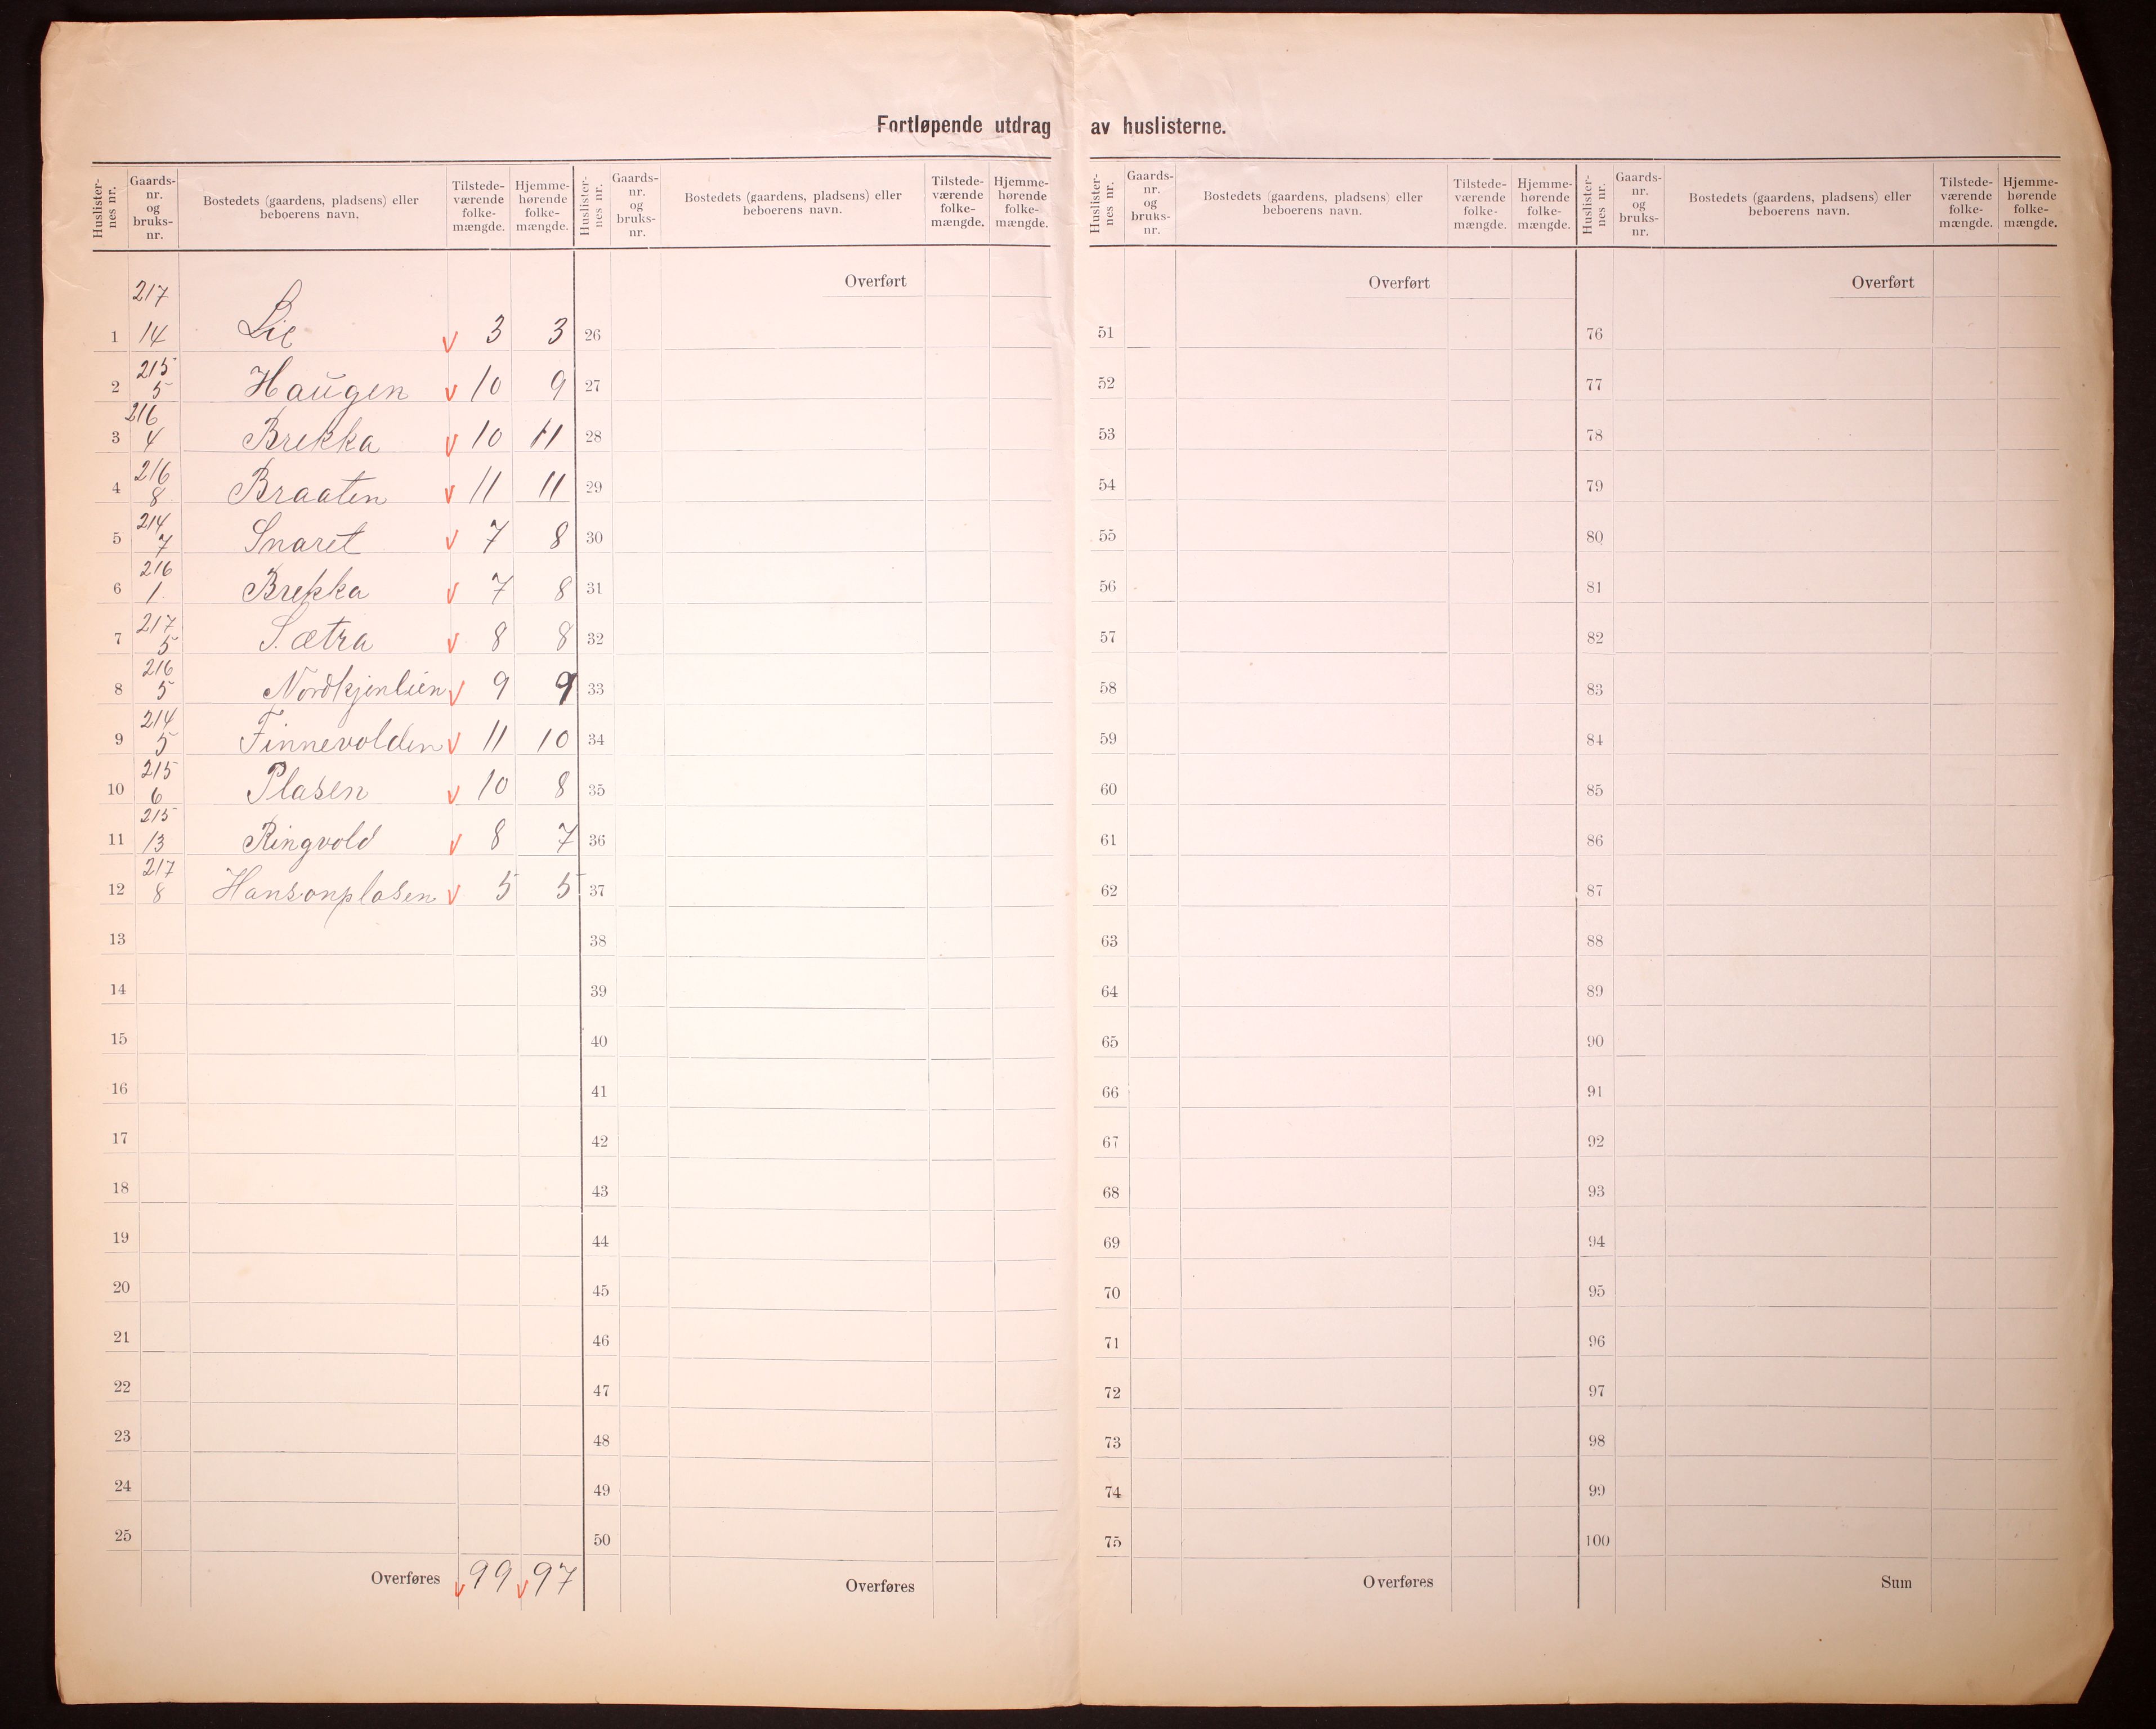 Fortløpende utdrag av huslisterne.
Huslisternes nr. Gaards-nr. og bruks-nr. Bostedets (gaardens, pladsens) eller beboerens navn. Tilstede-værende folke-mængde. Hjemme-hørende folke-mængde.
Huslisternes nr. Gaards-nr. og bruks-nr. Bostedets (gaardens, pladsens) eller beboerens navn. Tilstede-værende folke-mængde. Hjemme-hørende folke-mængde.
Huslisternes nr. Gaards-nr. og bruks-nr. Bostedets (gaardens, pladsens) eller beboerens navn. Tilstede-værende folke-mængde. Hjemme-hørende folke-mængde.
Huslisternes nr. Gaards-nr. og bruks-nr. Bostedets (gaardens, pladsens) eller beboerens navn. Tilstede-værende folke-mængde. Hjemme-hørende folke-mængde.
Overført Overført Overført
1 217 14 Lie v 3 3 26 51 76
2 215 5 Haugen v 10 9 27 52 77
3 216 4 Brekka v 10 11 28 53 78
4 216 8 Braaten v 11 11 29 54 79
5 214 7 Snaret v 7 8 30 55 80
6 216 1 Brekka v 7 8 31 56 81
7 217 5 Sætra v 8 8 32 57 82
8 216 5 Nordkjenlien v 9 9 33 58 83
9 214 5 Finnevolden v 11 10 34 59 84
10 215 6 Plasen v 10 8 35 60 85
11 215 13 Ringvold v 8 7 36 61 86
12 217 8 Hansonplasen v 5 5 37 62 87
13 38 63 88
14 39 64 89
15 40 65 90
16 41 66 91
17 42 67 92
18 43 68 93
19 44 69 94
20 45 70 95
21 46 71 96
22 47 72 97
23 48 73 98
24 49 74 99
25 50 75 100
Overføres v 99 v 97 Overføres Overføres Sum